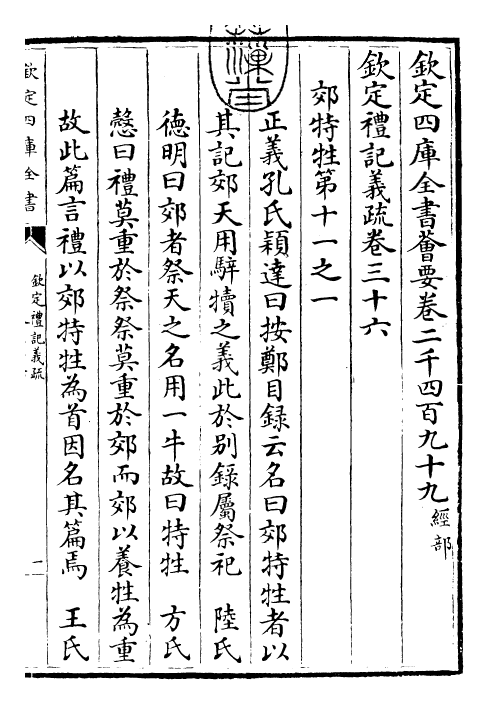 欽定四庫全書薈要卷二千四百九十九經部
欽定禮記義疏卷三十六
郊特牲第十一之一
正義孔氏穎達曰按鄭目録云名曰郊特牲者以
其記郊天用騂犢之義此於别錄屬祭祀　陸氏
徳明曰郊者祭天之名用一牛故曰特牲　方氏
慤曰禮莫重於祭祭莫重於郊而郊以養牲為重
故此篇言禮以郊特牲為首因名其篇焉　王氏
欽定四庫全書
欽定禮記義疏